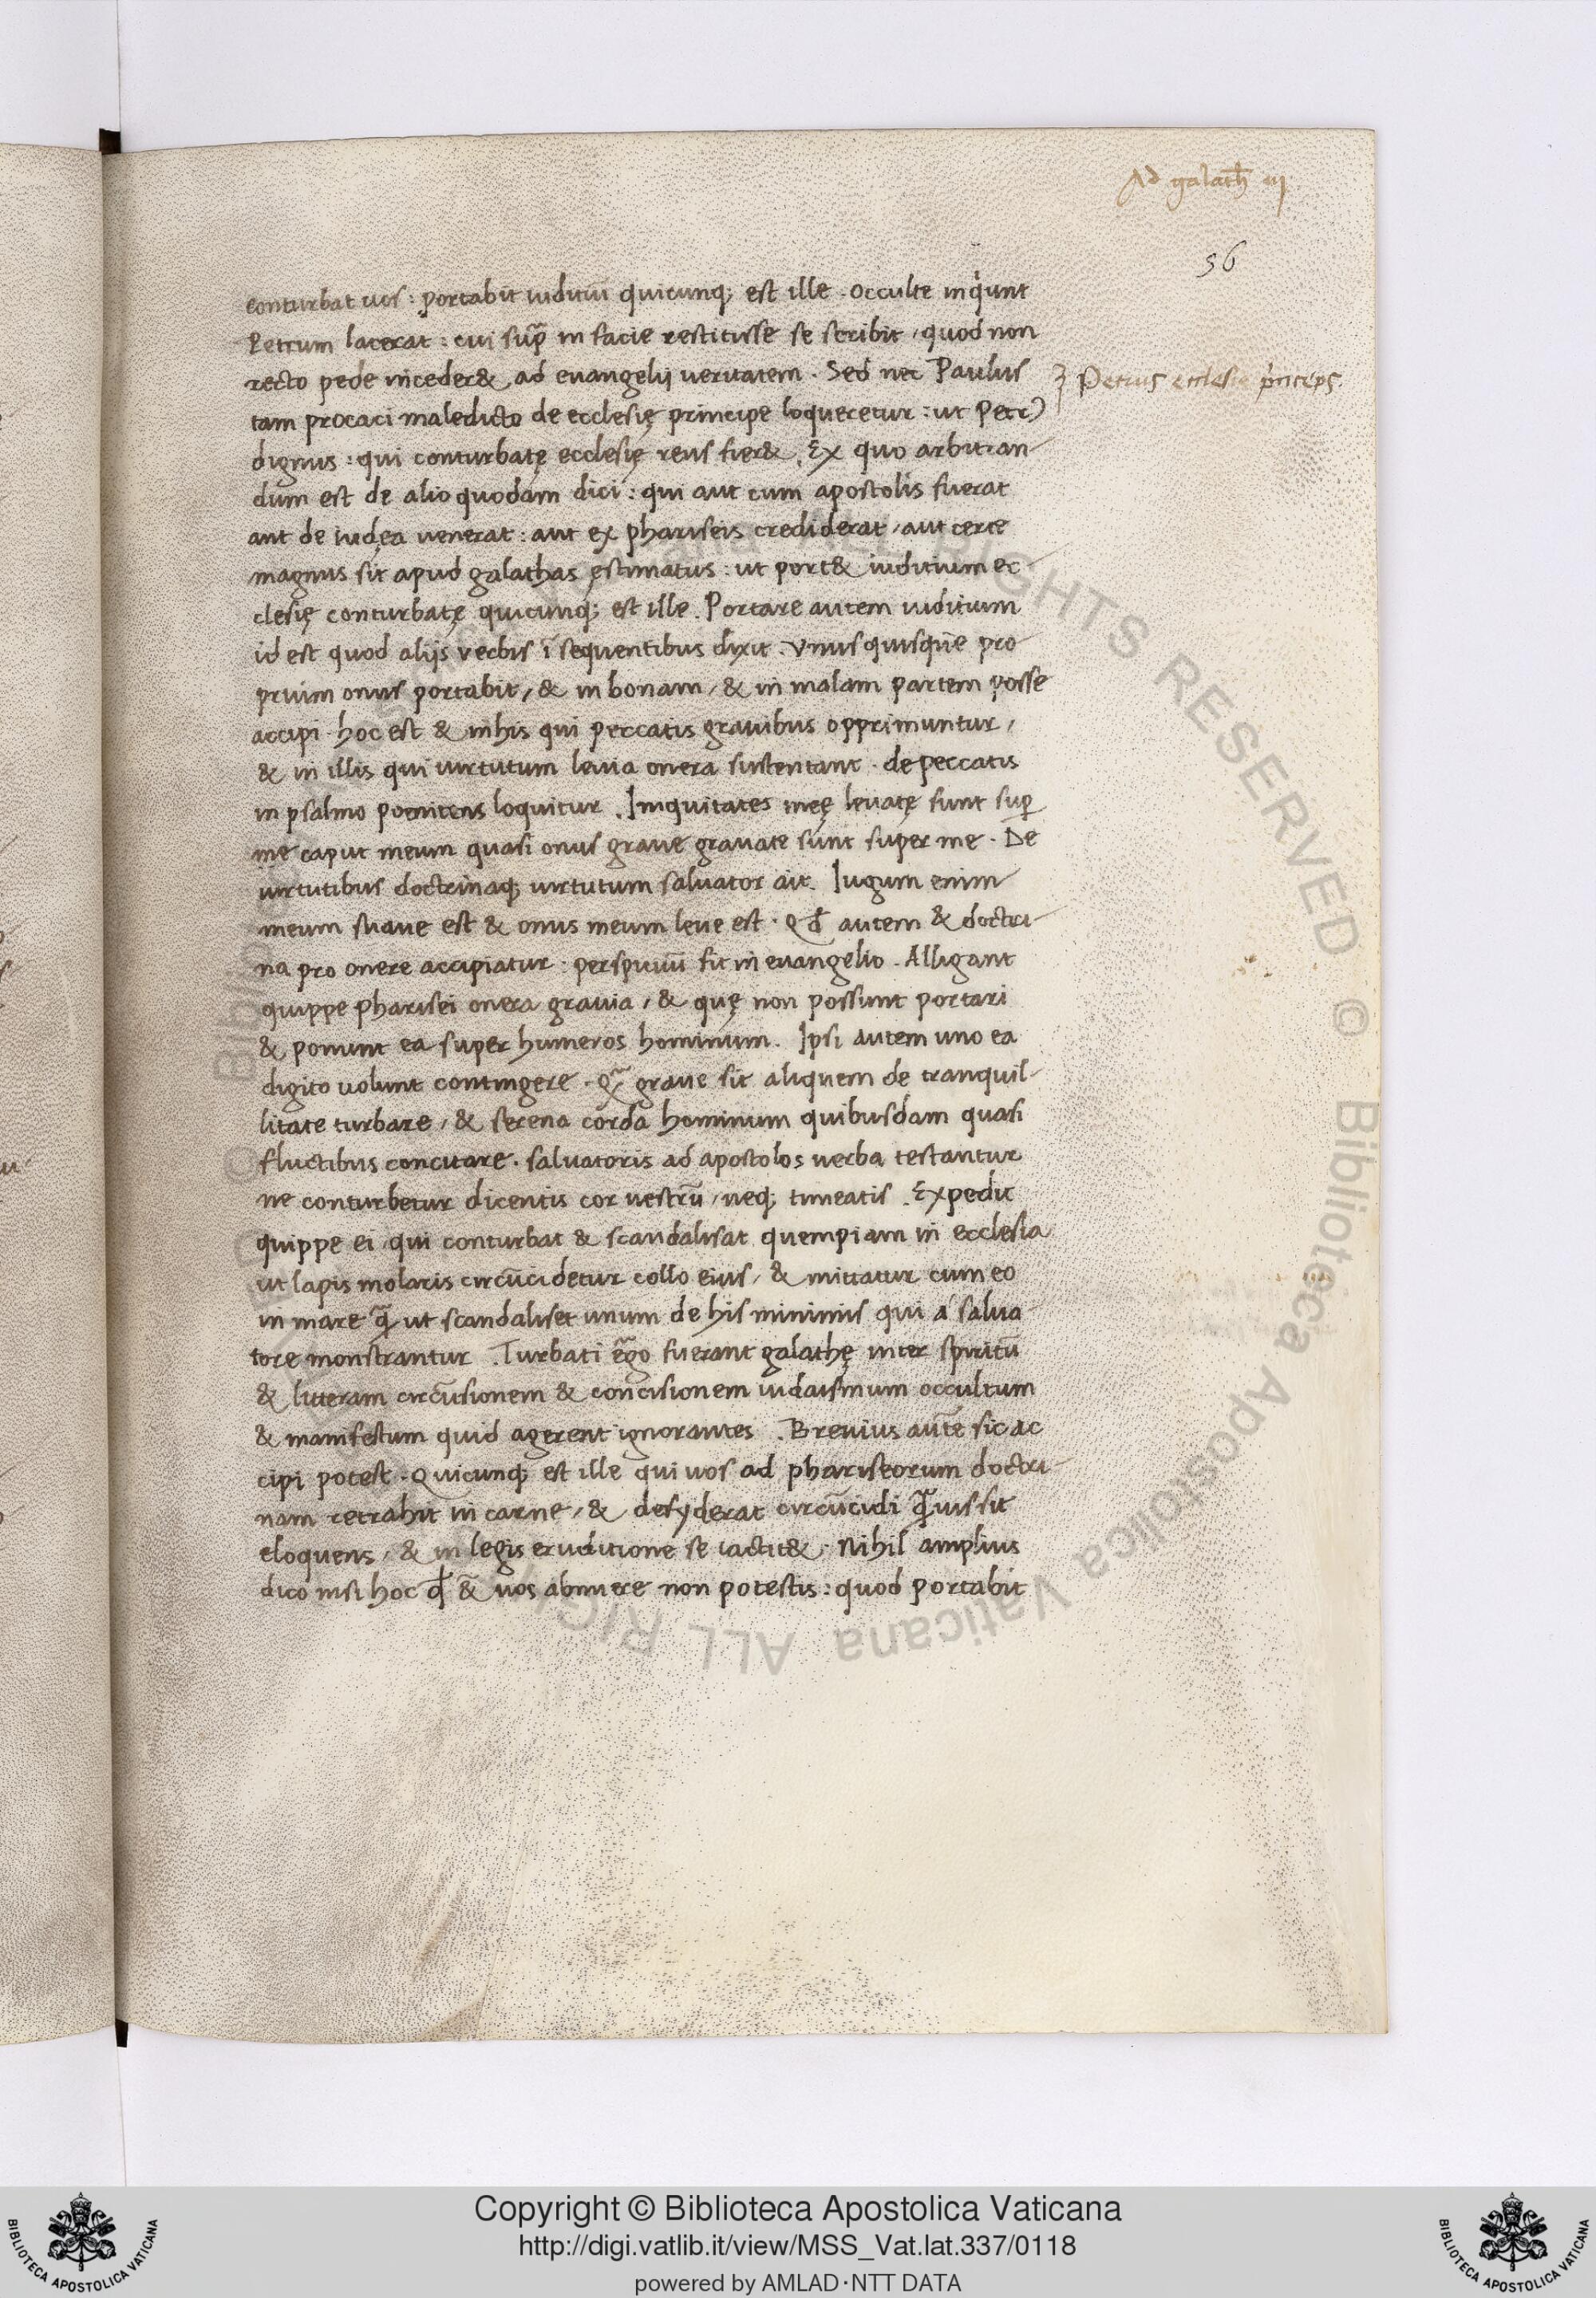 Ad galath̄ iij
56
conturbat uos : portabit iuditiū quicunq; est ille . Occulte inqͥunt
Petrum lacerat : cui supᷓ in facie restitisse se scribit , quod non
recto pede inceder& ad euangelij ueritatem . Sed nec Paulus
Petrus ecclesie pͥnceps.
tam procaci maledicto de ecclesię principe loqueretur : ut Petr)
dignus : qui conturbatę ecclesię reus fier& . Ex quo arbitran-
dum est de alio quodam dici : qui aut cum apostolis fuerat
aut de iudęa uenerat : aut ex phariseis crediderat , aut certe
magnus sit apud galathas ęstimatus : ut port& iuditium ec-
clesię conturbatę quicunq; est ille . Portare autem iuditium
id est quod alijs verbis ī sequentibus dixit . Vnusquisque pro-
prium onus portabit , & in bonam , & in malam partem posse
accipi . hoc est & in his qui peccatis grauibus opprimuntur ,
& in illis qui uirtutum leuia onera sustentant . de peccatis
in psalmo poenitens loquitur . Iniquitates meę leuatę sunt suꝑ
me caput meum quasi onus graue grauate sunt super me . De
uirtutibus doctrinaq; uirtutum saluator ait . Iugum enim
meum suaue est & onus meum leue est . Qđ autem & doctri-
na pro onere accipiatur : perspicuū fit in euangelio . Alligant
quippe pharisei onera grauia , & quę non possunt portari
& ponunt ea super humeros hominum . Ipsi autem uno ea
digito uolunt contingere . Qᷓ graue sit aliquem de tranquil-
litate turbare , & serena corda hominum quibusdam quasi
fluctibus concitare . saluatoris ad apostolos uerba testantur
ne conturbetur dicentis cor uestrū , neq; timeatis . Expedit
quippe ei qui conturbat & scandalisat quempiam in ecclesia
ut lapis molaris circūcidetur collo eius , & mittatur cum eo
in mare qᷓ ut scandaliset unum de his minimis qui a salua-
tore monstrantur . Turbati eᷓgo fuerant galathę inter spiritū
& litteram circūsionem & concisionem iudaismum occultum
& manifestum quid agerent ignorantes . Breuius autē sic ac
cipi potest . Quicunq; est ille qui uos ad phariseorum doctri-
nam retrahit in carne , & desyderat circūcidi qᷓuis sit
eloquens , & in legis eruditione se iactit& . Nihil amplius
dico nisi hoc qđ &̄ uos abnuere non potestis : quod portabit
Copyright © Biblioteca Apostolica Vaticana
http://digi.vatlib.it/view/MSS_Vat.lat.337/0118
powered by AMLAD·NTT DATA
BIBLIOTECA APOSTOLICA VATICANA
BIBLIOTECA APOSTOLICA VATICANA